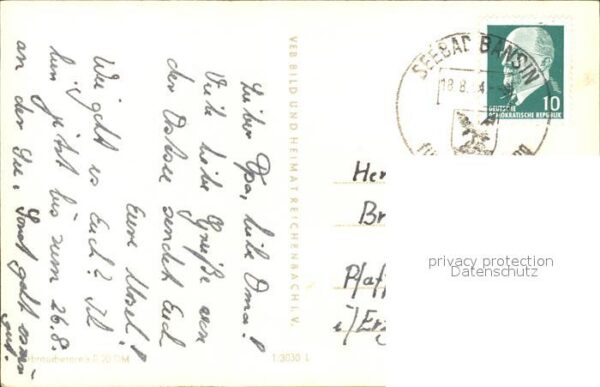 Lieber Opa, liebe Oma!
Viele liebe Grüße von
der Ostsee sendet Euch
Eure
Wie geht es Euch? Ich
bin jetzt bis zum 26.8.
an der See. Sonst geht
gut.
VEB BILD UND HEIMAT REICHENBACH I. V.
1:3030 L
SEEBAD BANSIN
18.8.
10
DEUTSCHE
DEMOKRATISCHE REPUBLIK
Her
Br
Pfaff
i/Erz
privacy protection
Datenschutz